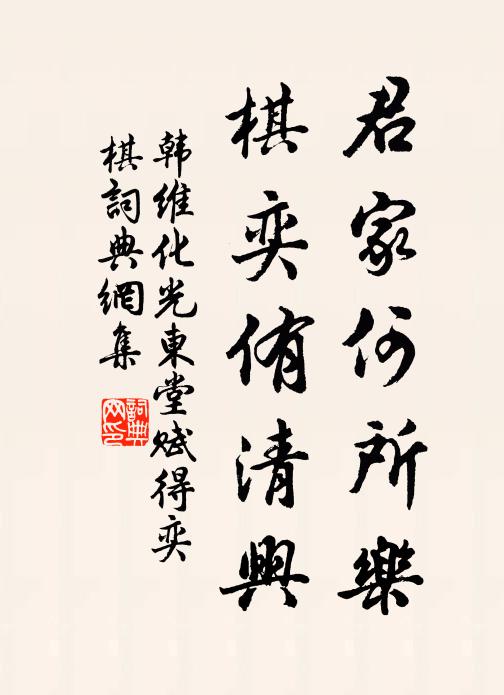 君家何所樂
棋奕侑清興
韩維化光東堂赋得奕
棋詞典網集
詞典
网印